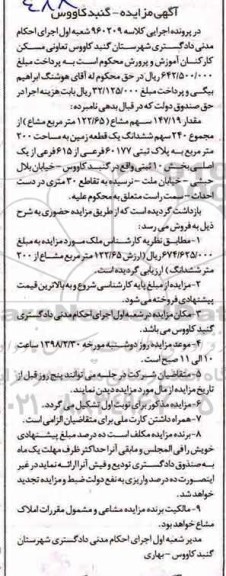 آگهی مزایده - گنبدکاووس
در پرونده اجرایی کلاسه ۹۶۰۲۰۹ شعبه اول اجرای احکام
مدنی دادگستری شهرستان گنبد کاووس تعاونی مسکن
کارکنان آموزش و پرورش محکوم است به پرداخت مبلغ
۶۴۲/۵۰۰/۰۰۰ ریال در حق محکوم له آقای هوشنگ ابراهیم
بیگی و پرداخت مبلغ ۳۲/۱۲۵/۰۰۰ ریال بابت هزینه اجرا در
حق صندوق دولت که در قبال بدهی نامبرده:
مقدار ۱۴۷/۱۹ سهم مشاع (۱۲۲/۶۵ متر مربع مشاع) از
مجموع ۲۴۰ سهم ششدانگ یک قطعه زمین به مساحت ۲۰۰
متر مربع به پلاک ثبتی ۶۰۱۷۷ فرعی از ۶۱۵ فرعی از یک
اصلی بخش ۱۰ ثبتی واقع در گنبد کاووس - خیابان بلال
حبشی - خیابان ملت - نرسیده به تقاطع ۳۰ متری در دست
احداث - سمت راست متعلق به محکوم علیه.
بازداشت گردیده است که از طریق مزایده حضوری به شرح
ذیل به فروش می رسد:
۱- مطابق نظریه کارشناس ملک مورد مزایده به مبلغ
۶۷۴/۶۲۵/۰۰۰ ریال (ارزش ۱۲۲/۶۵ متر مربع مشاع از ۲۰۰
متر ششدانگ) ارزیابی گردیده است.
۲- مزایده از مبلغ پایه کارشناسی شروع و به بالاترین قیمت
پیشنهادی فروخته می شود.
۳- مکان مزایده در شعبه اول اجرای احکام مدنی دادگستری
گنبد کاووس می باشد.
۴- موعد مزایده روز دوشنبه مورخه ۱۳۹۸/۲/۳۰ ساعت
۱۰ الی ۱۱ صبح است.
۵- متقاضیان شرکت در جلسه می توانند پنج روز قبل از
تاریخ مزایده از مال مورد مزایده دیدن نمایند.
۶- مزایده مذکور برای نوبت اول تشکیل می گردد.
۷- همراه داشتن کارت ملی برای متقاضیان الزامی است.
۸- برنده مزایده مکلف است ده درصد مبلغ پیشنهادی
خویش را فی المجلس و مابقی آنرا حداکثر ظرف مهلت یک ماه
به صندوق دادگستری تودیع و فیش آنرا ارائه نماید در غیر
اینصورت ده درصد واریزی به نفع دولت ضبط و مزایده تجدید
خواهد شد.
۹- مالکیت برنده مزایده مشاعی و مشمول مقررات املاک
مشاع خواهد بود.
مدیر شعبه اول اجرای احکام مدنی دادگستری شهرستان
گنبد کاووس - بهاری